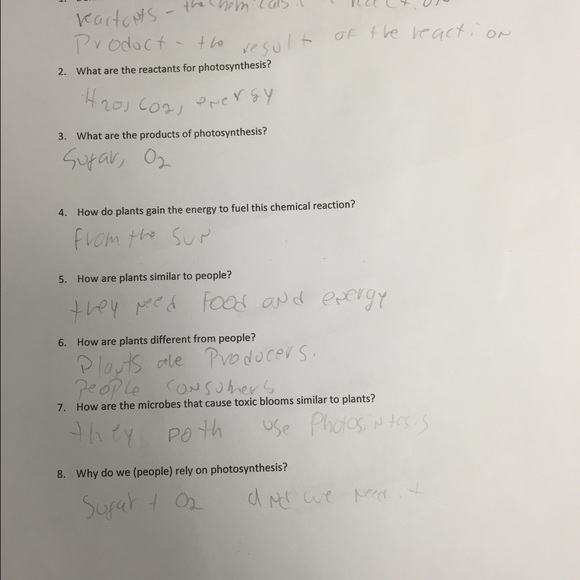 reactants - the chemicals
Product - the result of the reaction
2. What are the reactants for photosynthesis?
H20, CO2, energy
3. What are the products of photosynthesis?
Sugar, O2
4. How do plants gain the energy to fuel this chemical reaction?
from the sun
5. How are plants similar to people?
they need food and energy
6. How are plants different from people?
Plants are Producers.
People consumers
7. How are the microbes that cause toxic blooms similar to plants?
they poth use Photosintesis
8. Why do we (people) rely on photosynthesis?
Sugar + O2 we need it